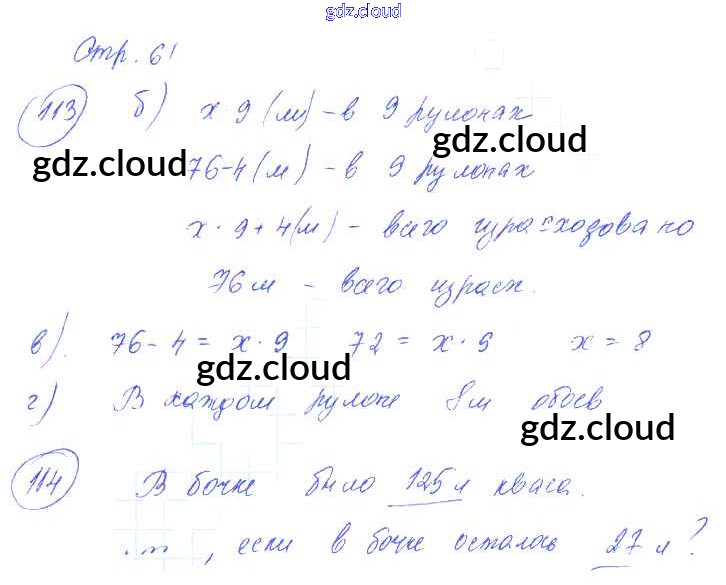 gdz.cloud
Стр. 61
113 б) x·9 (м) – в 9 рулонах
gdz.cloud
gdz.cloud
76-4 (м) – в 9 рулонах
x·9+4 (м) – всего израсходовано
76 м – всего израсх.
в). 76-4 = x·9 72 = x·9 x = 8
gdz.cloud
г) В каждом рулоне 8 м обоев
gdz.cloud
114 В бочке было 125 л кваса.
, если в бочке осталось 27 л?